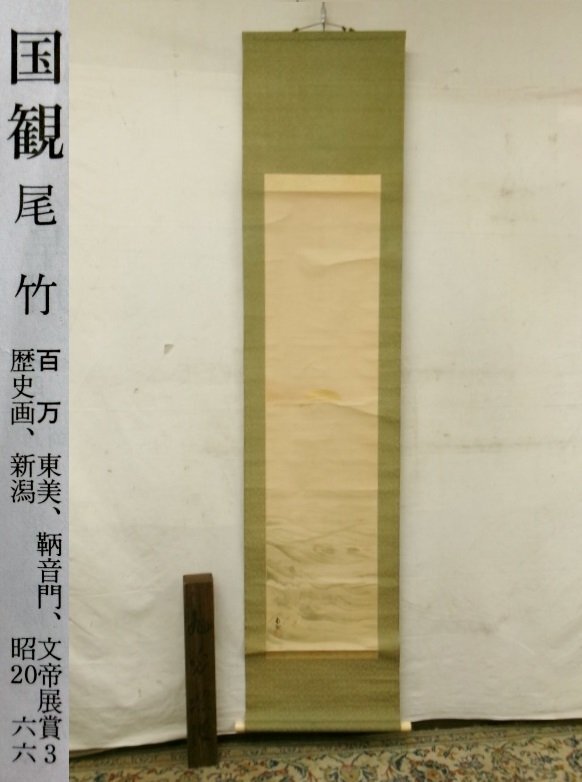 国観 尾竹
百万 東美、鞆音門、文帝展賞3
歴史画、新潟 昭20 六六